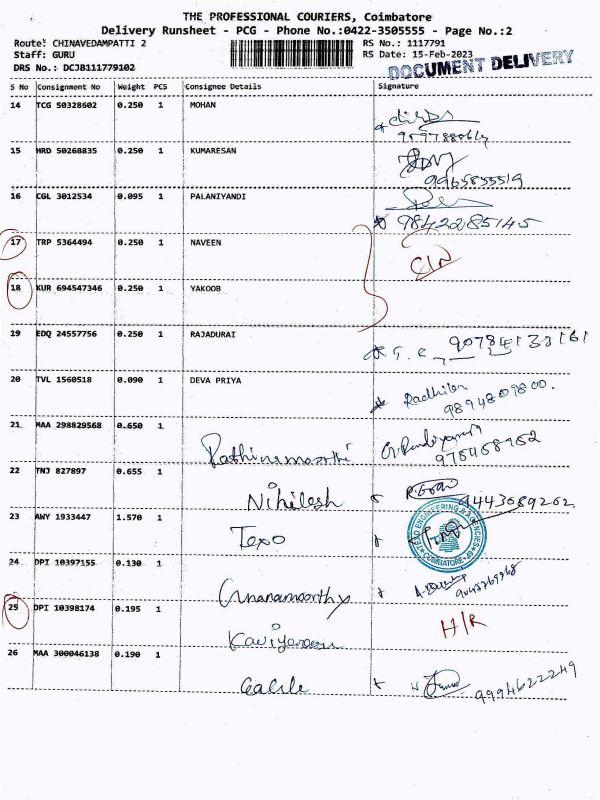 THE PROFESSIONAL COURIERS, Coimbatore
Delivery Runsheet - PCG - Phone No.:0422-3505555 - Page No.:2
Route: CHINAVEDAMPATTI 2 RS No.: 1117791
Staff: GURU RS Date: 15-Feb-2023
DRS No.: DCJB111779102 DOCUMENT DELIVERY
S No Consignment No Weight PCS Consignee Details Signature
14 TCG 50328602 0.250 1 MOHAN
15 HRD 50268835 0.250 1 KUMARESAN
9965855519
16 CGL 3012534 0.095 1 PALANIYANDI
9842285145
17 TRP 5364494 0.250 1 NAVEEN
18 KUR 694547346 0.250 1 YAKOOB
19 EDQ 24557756 0.250 1 RAJADURAI
20 TVL 1560518 0.090 1 DEVA PRIYA
9894809800.
21 MAA 298829568 0.650 1
22 TNJ 827897 0.655 1 Nihilesh
9443689262
23 AWY 1933447 1.570 1 Texo
TEXO ENGINEERING AGENCIES COIMBATORE
24 DPI 10397155 0.130 1 Gnanamoorthy
25 DPI 10398174 0.195 1 H/R
26 MAA 300046138 0.190 1
9994622249